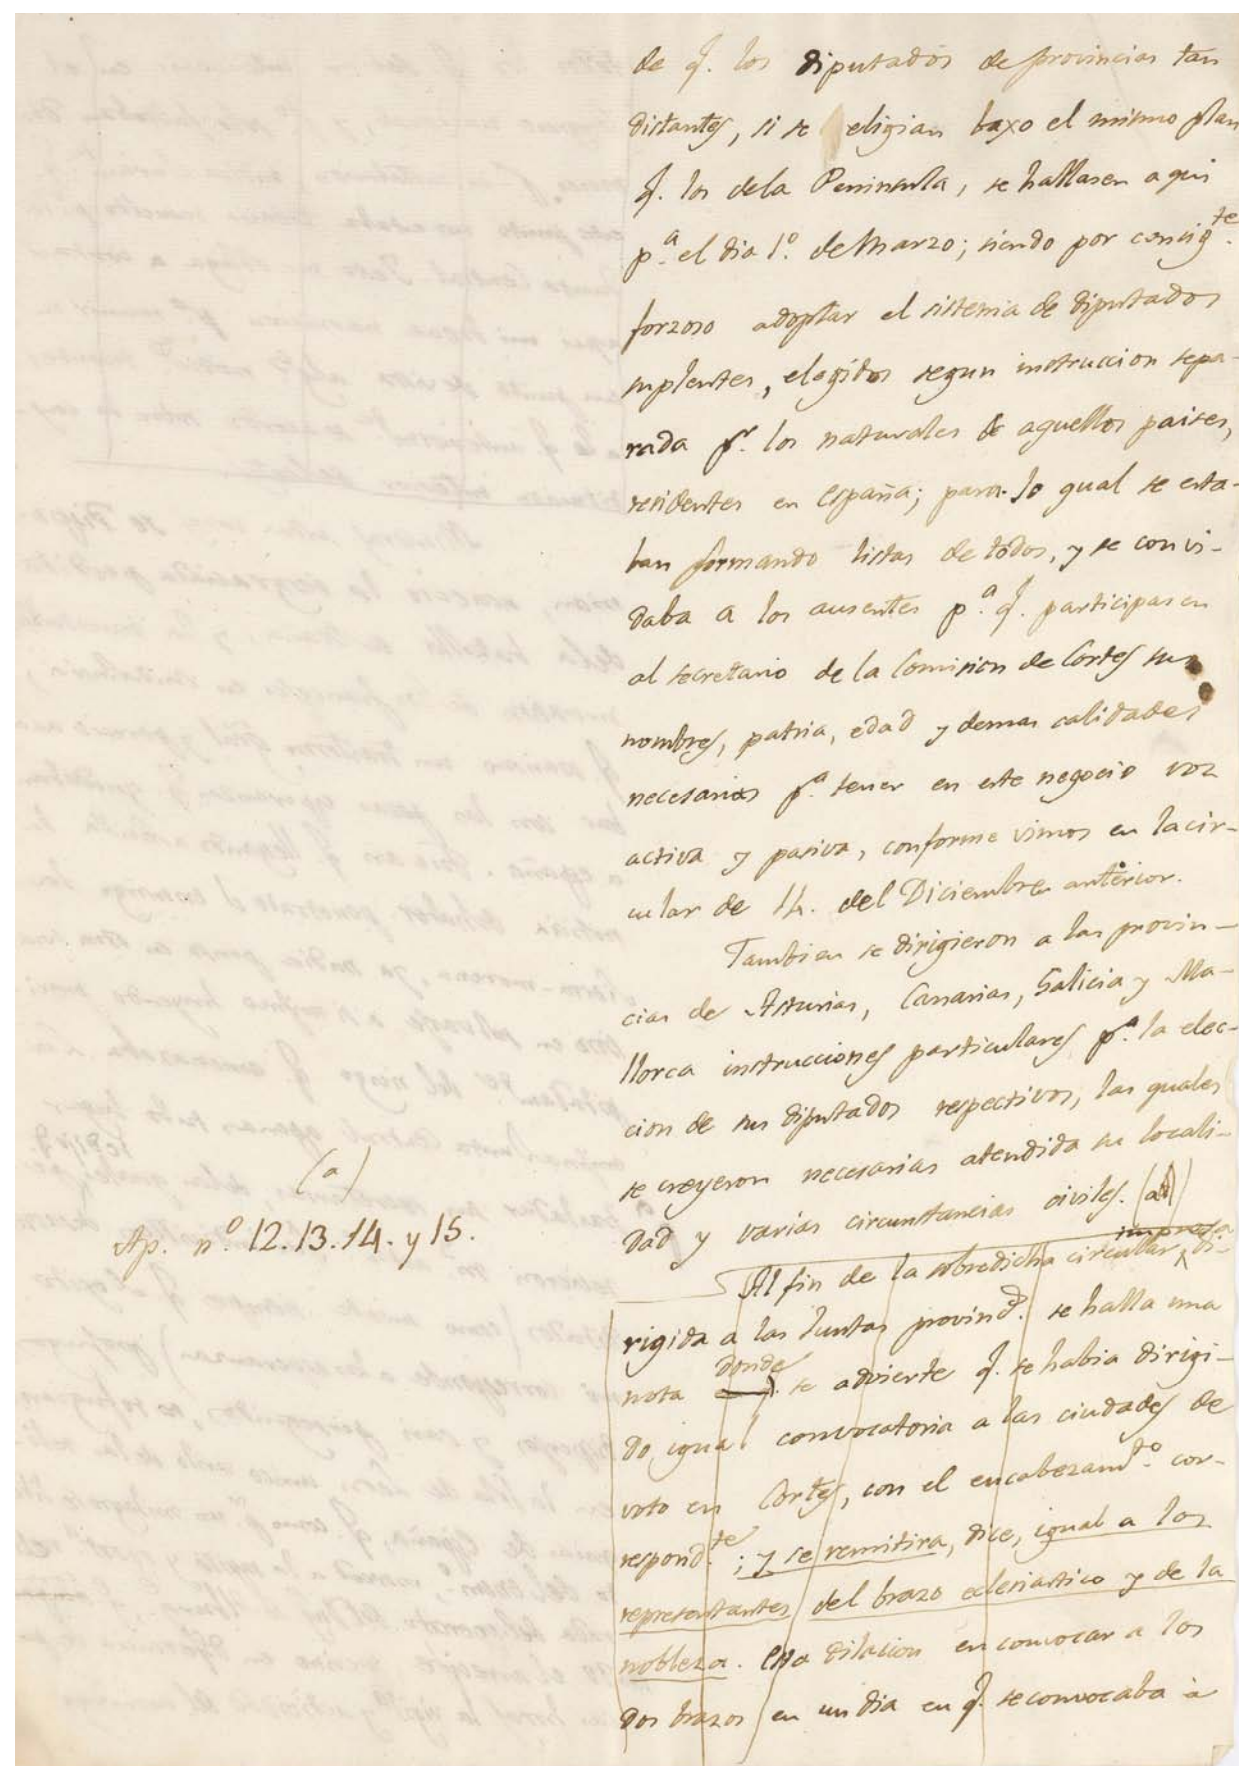 de q. los diputados de provincias tan
distantes, si se eligian baxo el mismo plan
q. los dela Peninsula, se hallasen aqui
p.ª el dia 1.º de Marzo; siendo por consig.te
forzoso adoptar el sistema de diputados
suplentes, elegidos segun instruccion sepa-
rada p.r los naturales de aquellos paises,
residentes en España; para lo qual se esta-
ban formando listas de todos, y se convi-
daba a los ausentes p.ª q. participasen
al secretario de la Comision de Cortes sus
nombres, patria, edad y demas calidades
necesarias p.ª tener en este negocio voz
activa y pasiva, conforme vimos en la cir-
cular de 14. del Diciembre anterior.
Tambien se dirigieron a las provin-
cias de Asturias, Canarias, Galicia y Ma-
llorca instrucciones particulares p.ª la elec-
cion de sus diputados respectivos, las quales
se creyeron necesarias atendida su locali-
dad y varias circunstancias civiles. (a)
(a)
Ap. n.º 12.13.14. y 15.
impresa
Al fin de la sobredicha circular di-
rigida a las Juntas provinc.s se halla una
nota donde se advierte q. se habia dirigi-
do igual convocatoria a las ciudades de
voto en Cortes, con el encabezam.to cor-
respond.te; y se remitira, dice, igual a los
representantes del brazo eclesiastico y de la
nobleza. Esta dilacion en convocar a los
dos brazos en un dia en q. se convocaba à